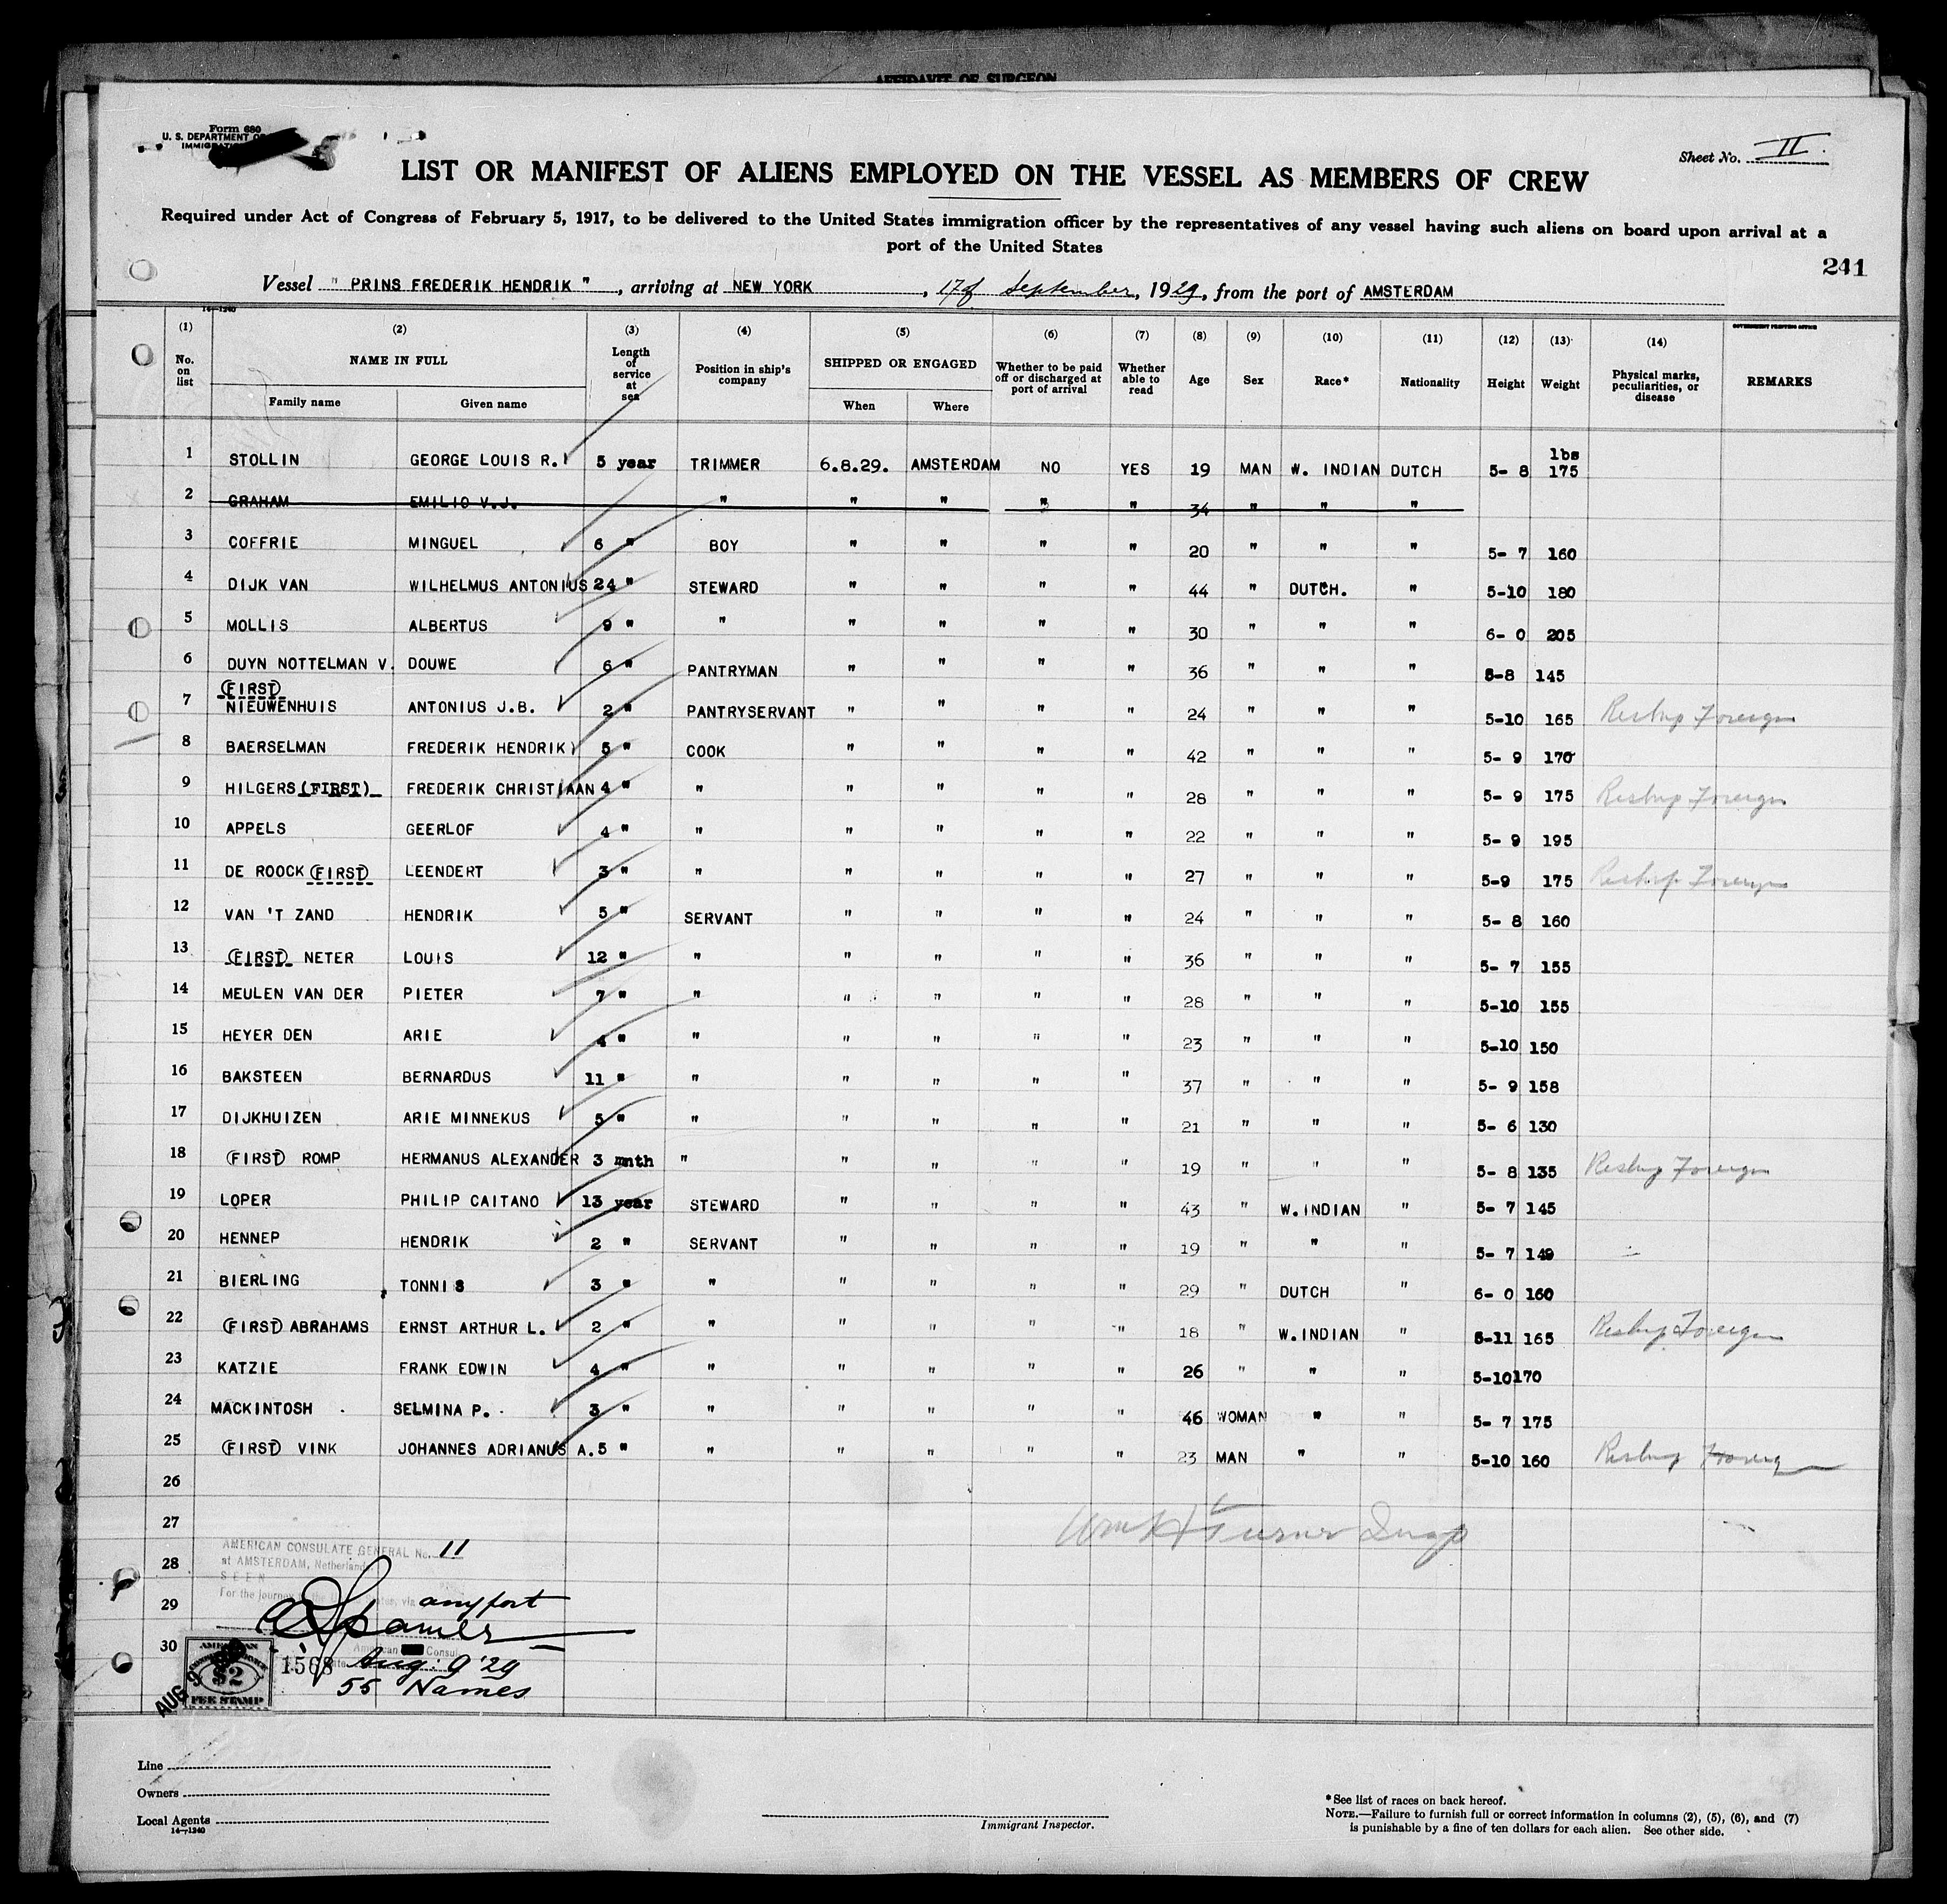 AFFIDAVIT OF SURGEON
Form 680
U. S. DEPARTMENT OF
Sheet No. II.
LIST OR MANIFEST OF ALIENS EMPLOYED ON THE VESSEL AS MEMBERS OF CREW
Required under Act of Congress of February 5, 1917, to be delivered to the United States immigration officer by the representatives of any vessel having such aliens on board upon arrival at a
port of the United States
241
Vessel " PRINS FREDERIK HENDRIK ", arriving at NEW YORK, 17 of September, 1929, from the port of AMSTERDAM
14—1240
GOVERNMENT PRINTING OFFICE
(1) No. on list (2) NAME IN FULL Family name Given name (3) Length of service at sea (4) Position in ship's company (5) SHIPPED OR ENGAGED When Where (6) Whether to be paid off or discharged at port of arrival (7) Whether able to read (8) Age (9) Sex (10) Race* (11) Nationality (12) Height (13) Weight (14) Physical marks, peculiarities, or disease REMARKS
1 STOLLIN GEORGE LOUIS R. 5 year TRIMMER 6.8.29. AMSTERDAM NO YES 19 MAN W. INDIAN DUTCH 5- 8 lbs 175
2 GRAHAM EMILIO V.J. " " " " " 34 " " "
3 COFFRIE MINGUEL 6 " BOY " " " " 20 " " " 5- 7 160
4 DIJK VAN WILHELMUS ANTONIUS 24 " STEWARD " " " " 44 " DUTCH. " 5-10 180
5 MOLLIS ALBERTUS 9 " " " " " " 30 " " " 6- 0 205
6 DUYN NOTTELMAN V. DOUWE 6 " PANTRYMAN " " " " 36 " " " 5-8 145
7 (FIRST) NIEUWENHUIS ANTONIUS J.B. 2 " PANTRYSERVANT " " " " 24 " " " 5-10 165 Reship Foreign
8 BAERSELMAN FREDERIK HENDRIK 5 " COOK " " " " 42 " " " 5- 9 170
9 HILGERS (FIRST) FREDERIK CHRISTIAAN 4 " " " " " " 28 " " " 5- 9 175 Reship Foreign
10 APPELS GEERLOF 4 " " " " " " 22 " " " 5- 9 195
11 DE ROOCK (FIRST) LEENDERT 3 " " " " " " 27 " " " 5-9 175 Reship Foreign
12 VAN 'T ZAND HENDRIK 5 " SERVANT " " " " 24 " " " 5- 8 160
13 (FIRST) NETER LOUIS 12 " " " " " " 36 " " " 5- 7 155
14 MEULEN VAN DER PIETER 7 " " " " " " 28 " " " 5-10 155
15 HEYER DEN ARIE 4 " " " " " " 23 " " " 5-10 150
16 BAKSTEEN BERNARDUS 11 " " " " " " 37 " " " 5- 9 158
17 DIJKHUIZEN ARIE MINNEKUS 5 " " " " " " 21 " " " 5- 6 130
18 (FIRST) ROMP HERMANUS ALEXANDER 3 mnth " " " " " 19 " " " 5- 8 135 Reship Foreign
19 LOPER PHILIP CAITANO 13 year STEWARD " " " " 43 " W.INDIAN " 5- 7 145
20 HENNEP HENDRIK 2 " SERVANT " " " " 19 " " " 5- 7 149
21 BIERLING TONNIS 3 " " " " " " 29 " DUTCH " 6- 0 160
22 (FIRST) ABRAHAMS ERNST ARTHUR L. 2 " " " " " " 18 " W.INDIAN " 5-11 165 Reship Foreign
23 KATZIE FRANK EDWIN 4 " " " " " " 26 " " " 5-10 170
24 MACKINTOSH SELMINA P. 3 " " " " " " 46 WOMAN " " 5- 7 175
25 (FIRST) VINK JOHANNES ADRIANUS A. 5 " " " " " " 23 MAN " " 5-10 160 Reship Foreign
26
27
Wm H Turner Insp
28
29
30
AMERICAN CONSULATE GENERAL No. 11
at AMSTERDAM, Netherland
SEEN
For the journey via any port
American Consul
1568 Aug. 9 '29
55 Names
$2
FEE STAMP
AUG 9
Line
Owners
Local Agents
14—1240
Immigrant Inspector.
*See list of races on back hereof.
NOTE.—Failure to furnish full or correct information in columns (2), (5), (6), and (7)
is punishable by a fine of ten dollars for each alien. See other side.